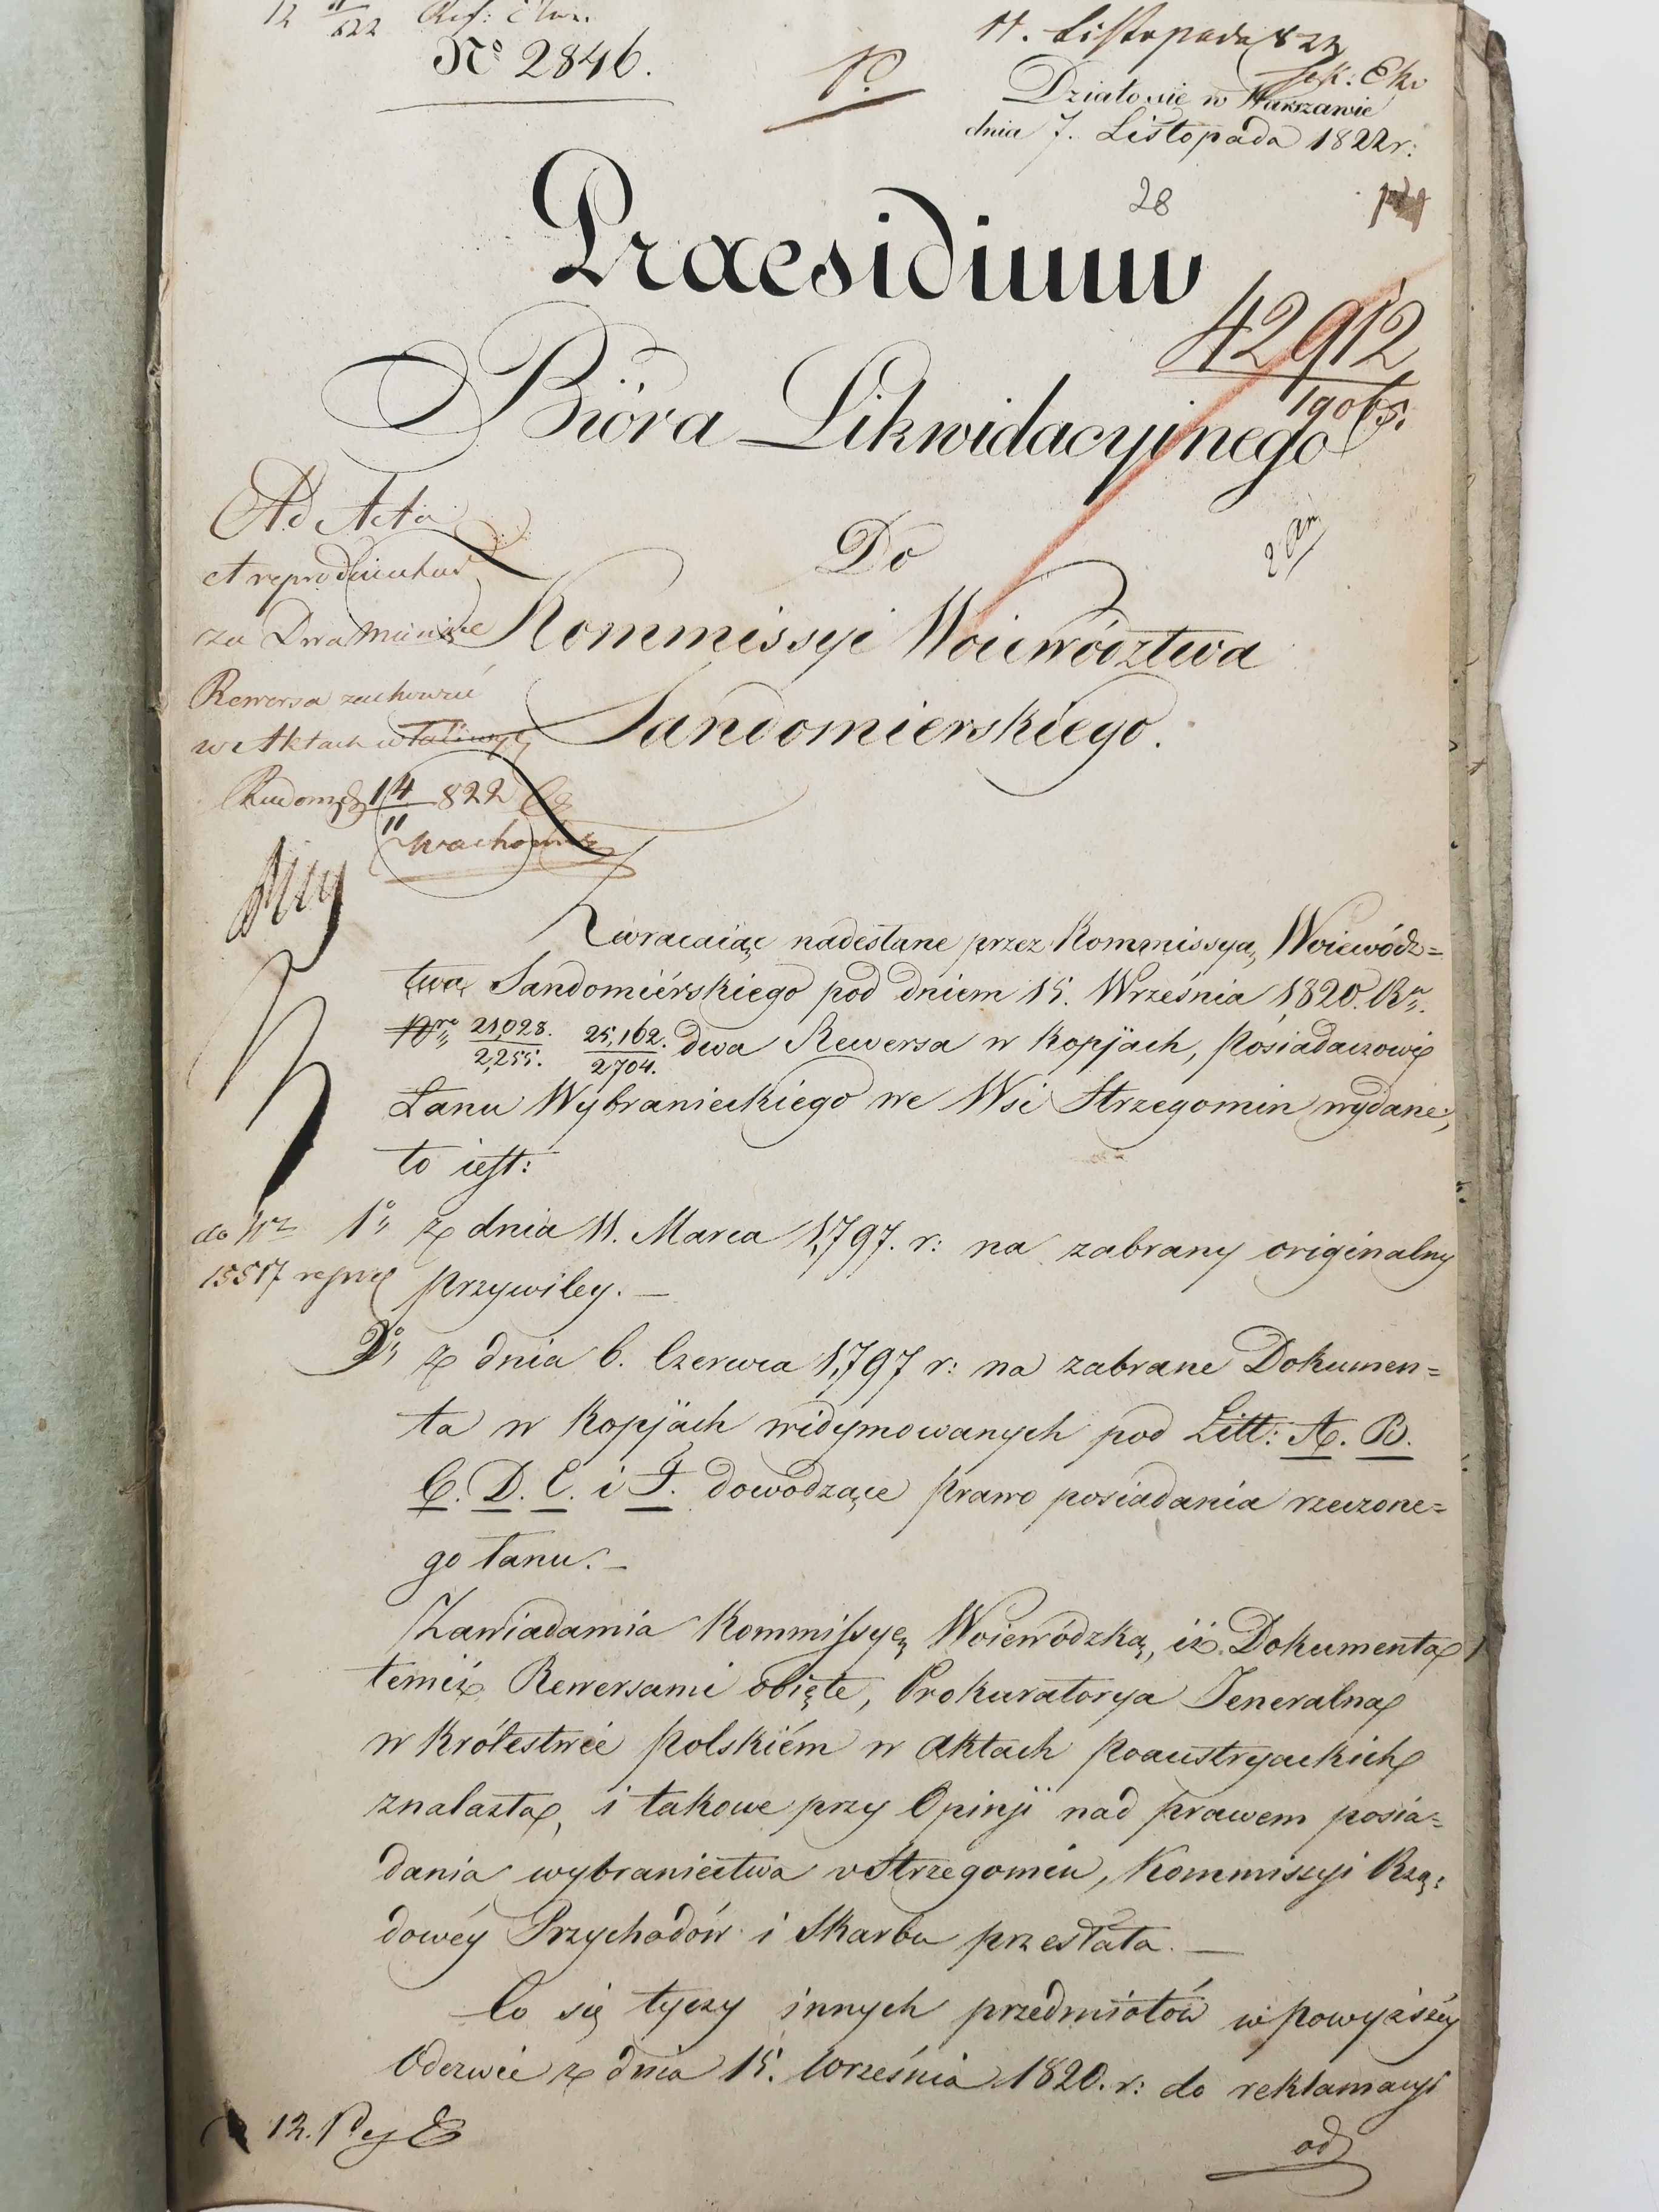 12 11/822
No 2846.
11. Listopada 822
Działo się w Warszawie
dnia 7. Listopada 1822 r:
28
Praesidium
42912
Bióra Likwidacyjnego
Ad Acta
Do
et reproducatur
za Dwa Miesiące
Kommissyi Woiewództwa
Rewersa zachować
Sandomierskiego.
w Aktach
14/11 822
Zwracaiąc nadesłane przez Kommissyą Woiewódz=
twa Sandomiérskiego pod dniem 15. Września 1,820. Rr.
21,028./2,255. 25,162./2704. dwa Rewersa w Kopjach, Posiadaczowi
Łanu Wybranieckiego we Wsi Strzegomin wydane,
to iest:
do Nr 1o z dnia 11. Marca 1,797. r: na zabrany originalny
15517
przywiley. —
2o z dnia 6. Czerwca 1,797 r: na zabrane Dokumen=
ta w Kopjach widymowanych pod Litt: A. B.
C. D. E. i F. dowodzące prawo posiadania rzeczone=
go łanu. —
Zawiadamia Kommissyę Woiewódzką, iż Dokumenta
temiż Rewersami obięte, Prokuratorya Jeneralna
w Królestwie Polskiém w Aktach Poaustryackich
znalazła, i takowe przy Opinji nad prawem posia=
dania wybraniectwa w Strzegominie, Kommissyi Rzą=
dowéy Przychodów i Skarbu przesłała. —
Co się tyczy innych przedmiotów w powyższéy
Odezwie z dnia 15. Września 1820. r: do reklamacyi
12.
od